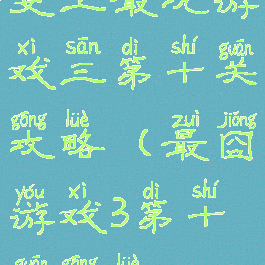 上最 游
xì sān dì shí guān
戏三第十关
gōng lüè zuì jiǒng
攻略（最囧
yóu xì dì shí
游戏3第十
guān gōng lüè